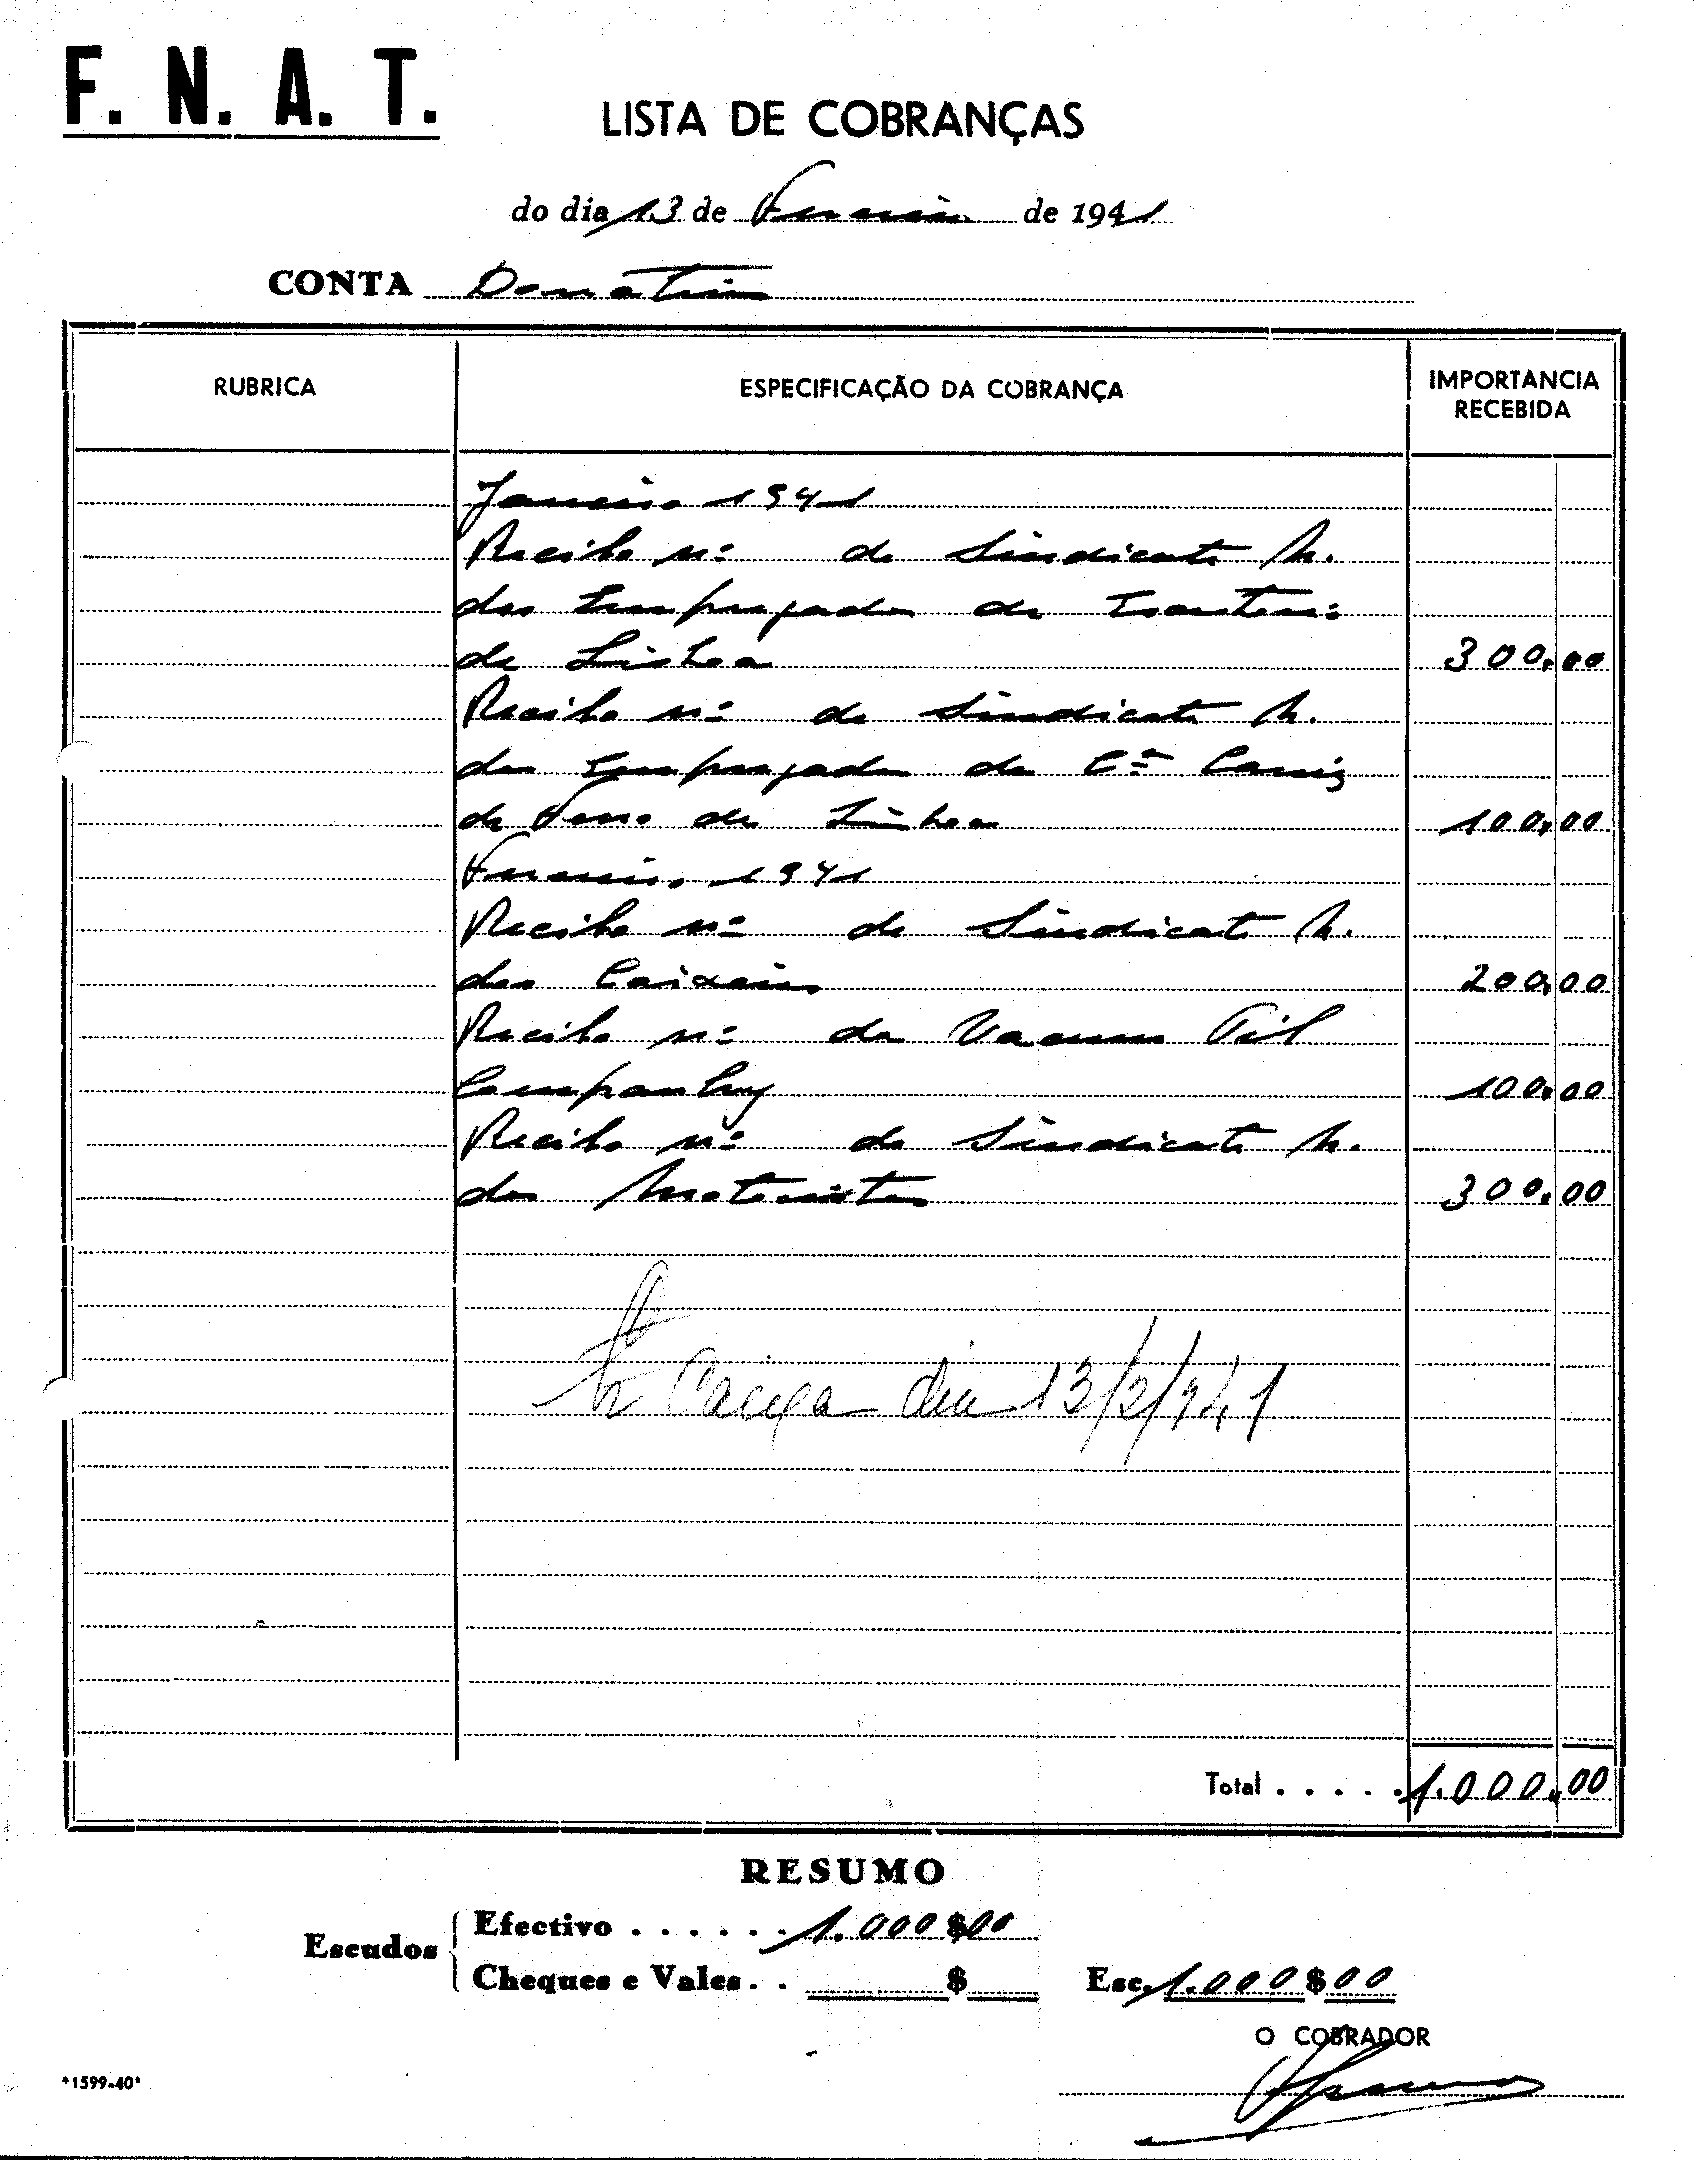 F. N. A. T.
LISTA DE COBRANÇAS
do dia 13 de Fevereiro de 1941
CONTA Donativos
RUBRICA
ESPECIFICAÇÃO DA COBRANÇA
IMPORTANCIA
RECEBIDA
Janeiro 1941
Recibo nº do Sindicato N.
dos Empregados de
de Lisboa 300.00
Recibo nº do Sindicato N.
dos Empregados da Cª Camº
de Ferro de Lisboa 100.00
Fevereiro 1941
Recibo nº do Sindicato N.
dos Caixeiros 200.00
Recibo nº da Vacuum Oil
Company 100.00
Recibo nº do Sindicato N.
dos Motoristas 300.00
Caixa dia 13/2/941
Total . . . . . 1.000.00
RESUMO
Escudos
Efectivo . . . . . . 1.000$00
Cheques e Vales. . $
Esc. 1.000$00
O COBRADOR
*1599-40*